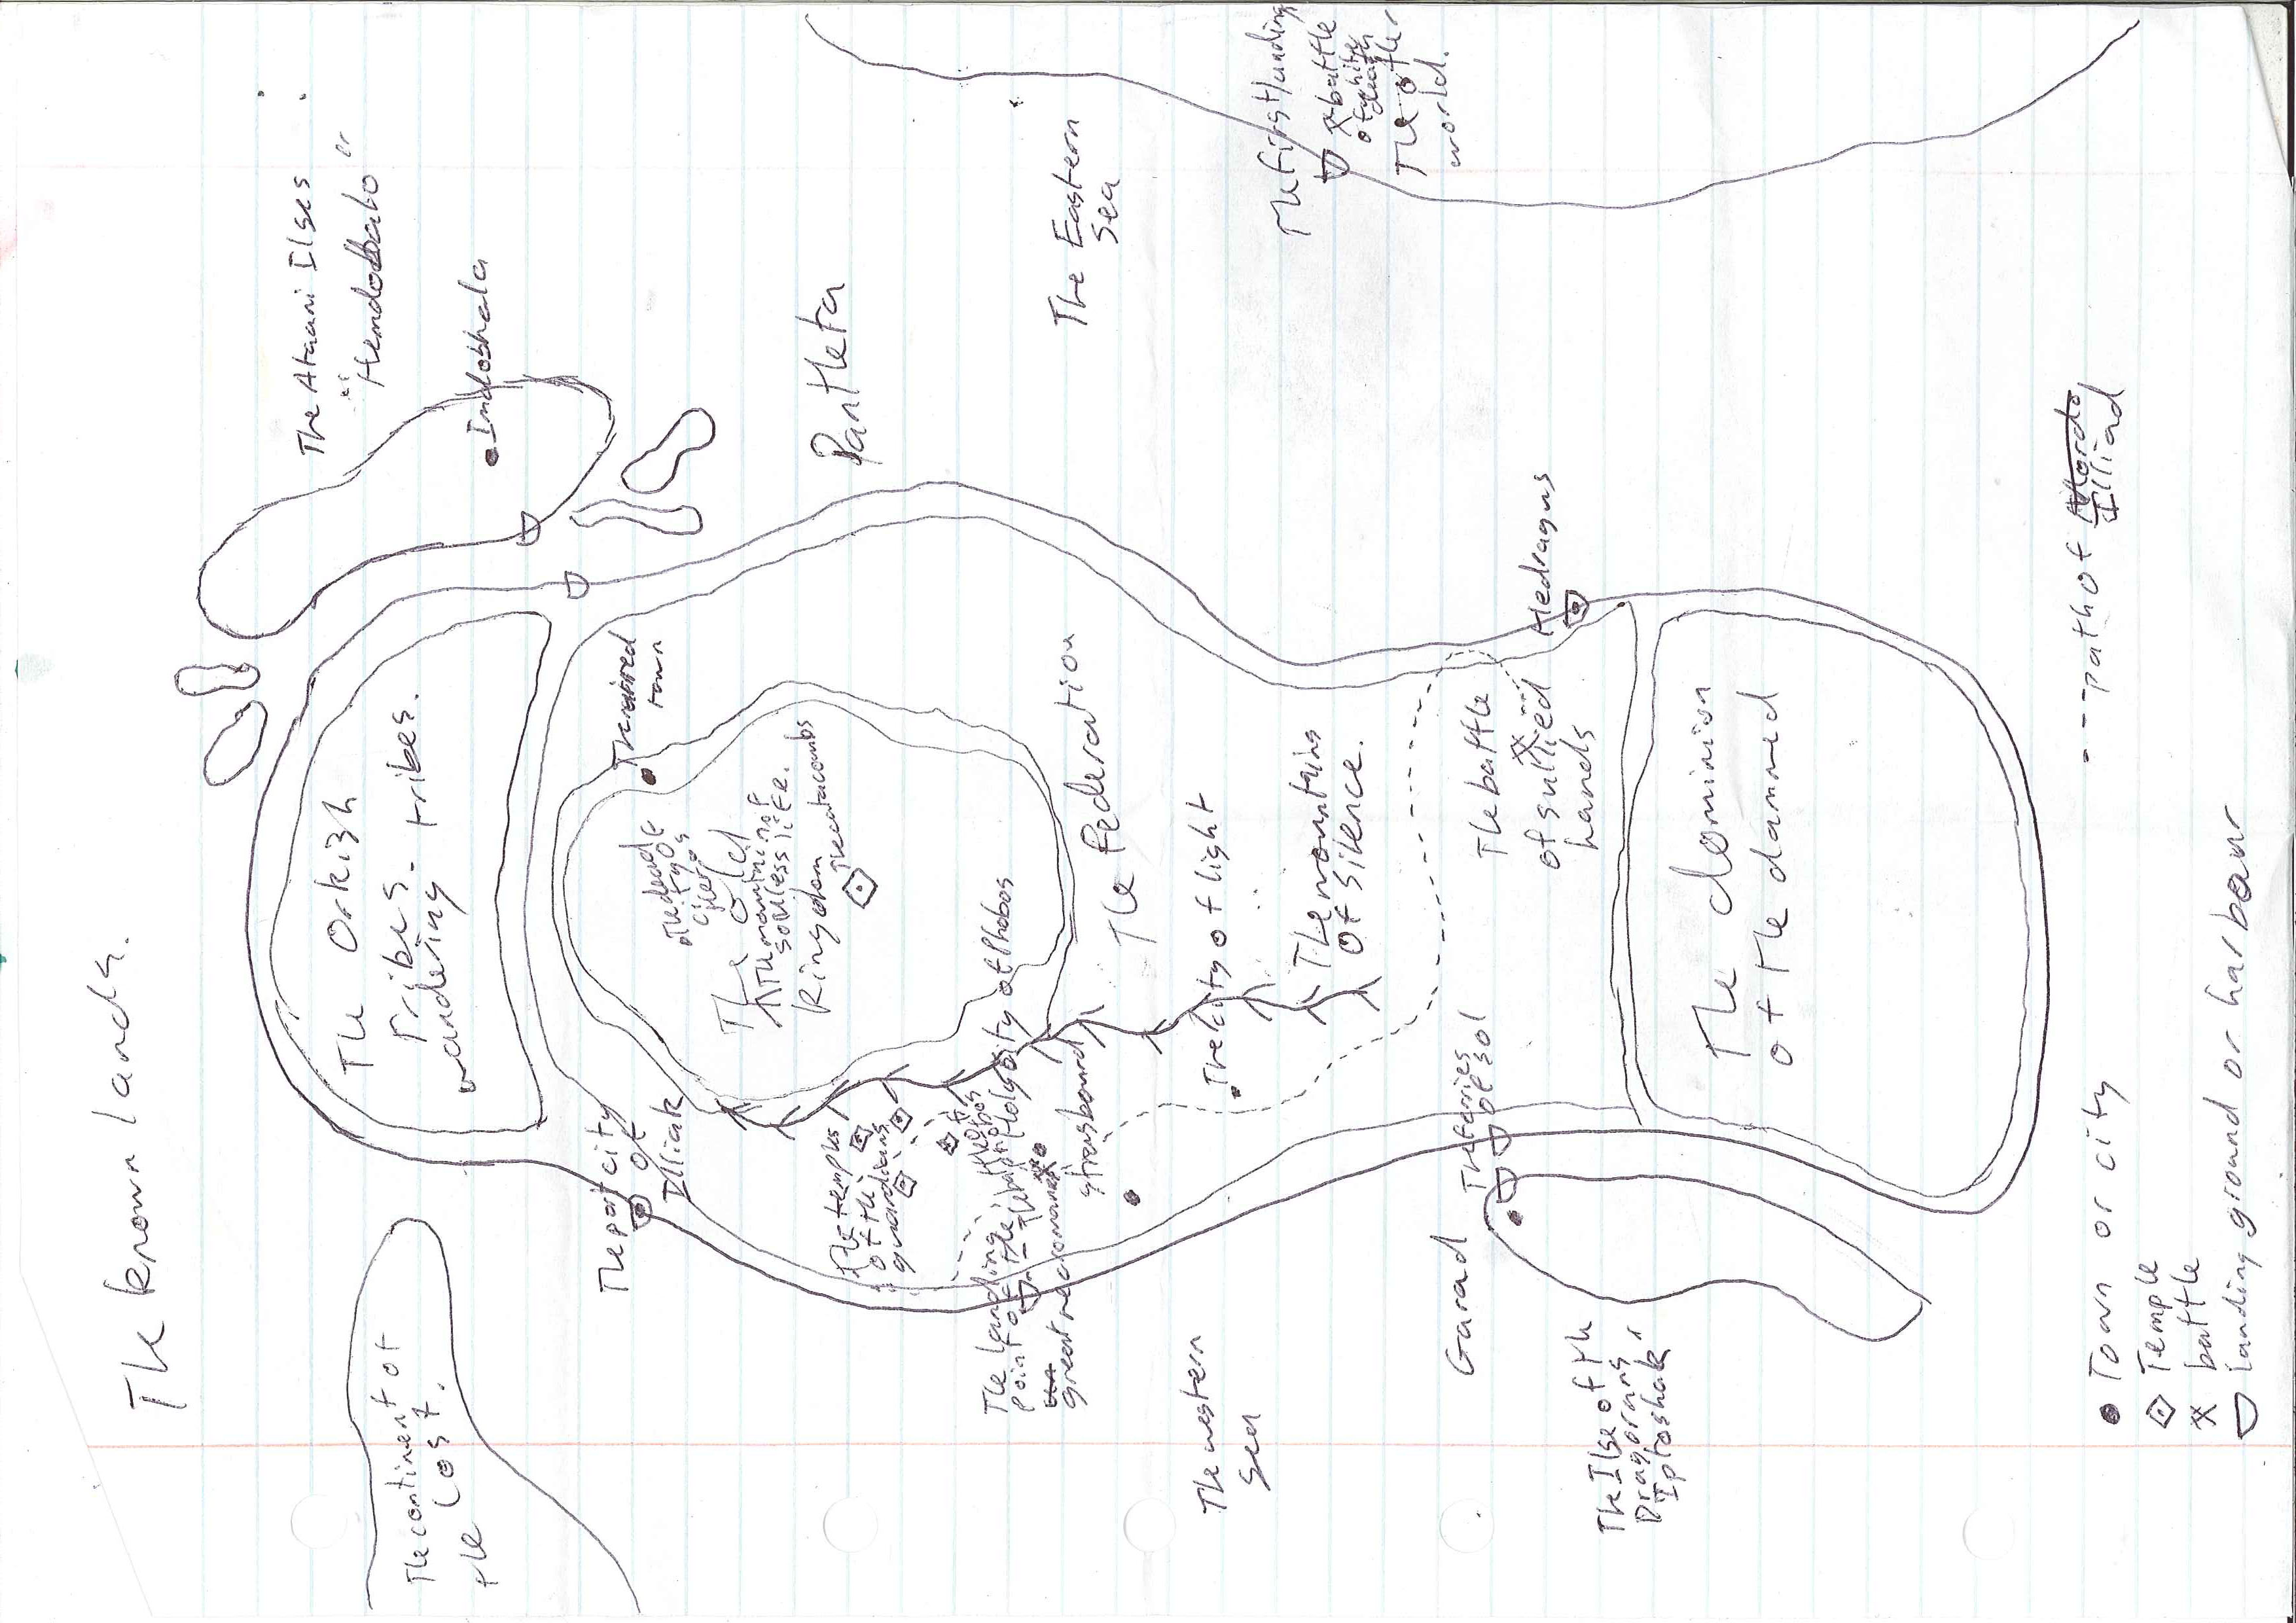 The known lands.
The Ataani Ilses
" Hendobabo "
Indoshala
The continent of
the Lost.
The Orkish
Tribes -
wandering tribes.
The port city
of
Illiak
The ruined
town
The dead
city of
The Old
The mountain of
souless life.
Kingdom
The catacombs
Pantleta
The temples
of the
guardians
The holy city of Phobos
The landing
point of the
great necromancer
strasbourd
The Federation
The Eastern
Sea
The first landing
battle
of white
death
The other
world.
The western
sea
The city of light
The mountains
of silence.
Garad
The ferries
of sol
The battle
of sullied
hands
Hedragus
The Ilse of the
Dragorans
Iptoshak
The dominion
of the damned
Town or city
Temple
battle
landing ground or harbour
--- path of Illiad